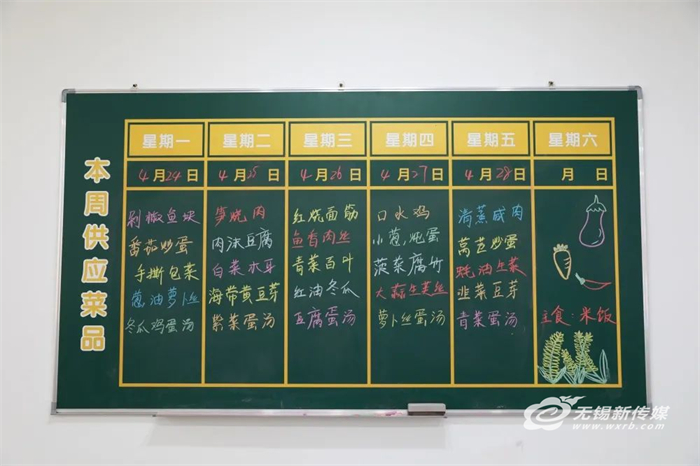 本周供应菜品
星期一 星期二 星期三 星期四 星期五 星期六
4月24日 4月25日 4月26日 4月27日 4月28日 月 日
剁椒鱼块 笋烧肉 红烧面筋 口水鸡 清蒸咸肉
番茄炒蛋 肉沫豆腐 鱼香肉丝 小葱炖蛋 莴苣炒蛋
手撕包菜 白菜木耳 青菜百叶 菠菜腐竹 蚝油生菜
葱油萝卜丝 海带黄豆芽 红油冬瓜 大蒜生菜丝 韭菜豆芽
冬瓜鸡蛋汤 紫菜蛋汤 豆腐蛋汤 萝卜丝蛋汤 青菜蛋汤 主食:米饭
无锡新传媒
www.wxrb.com